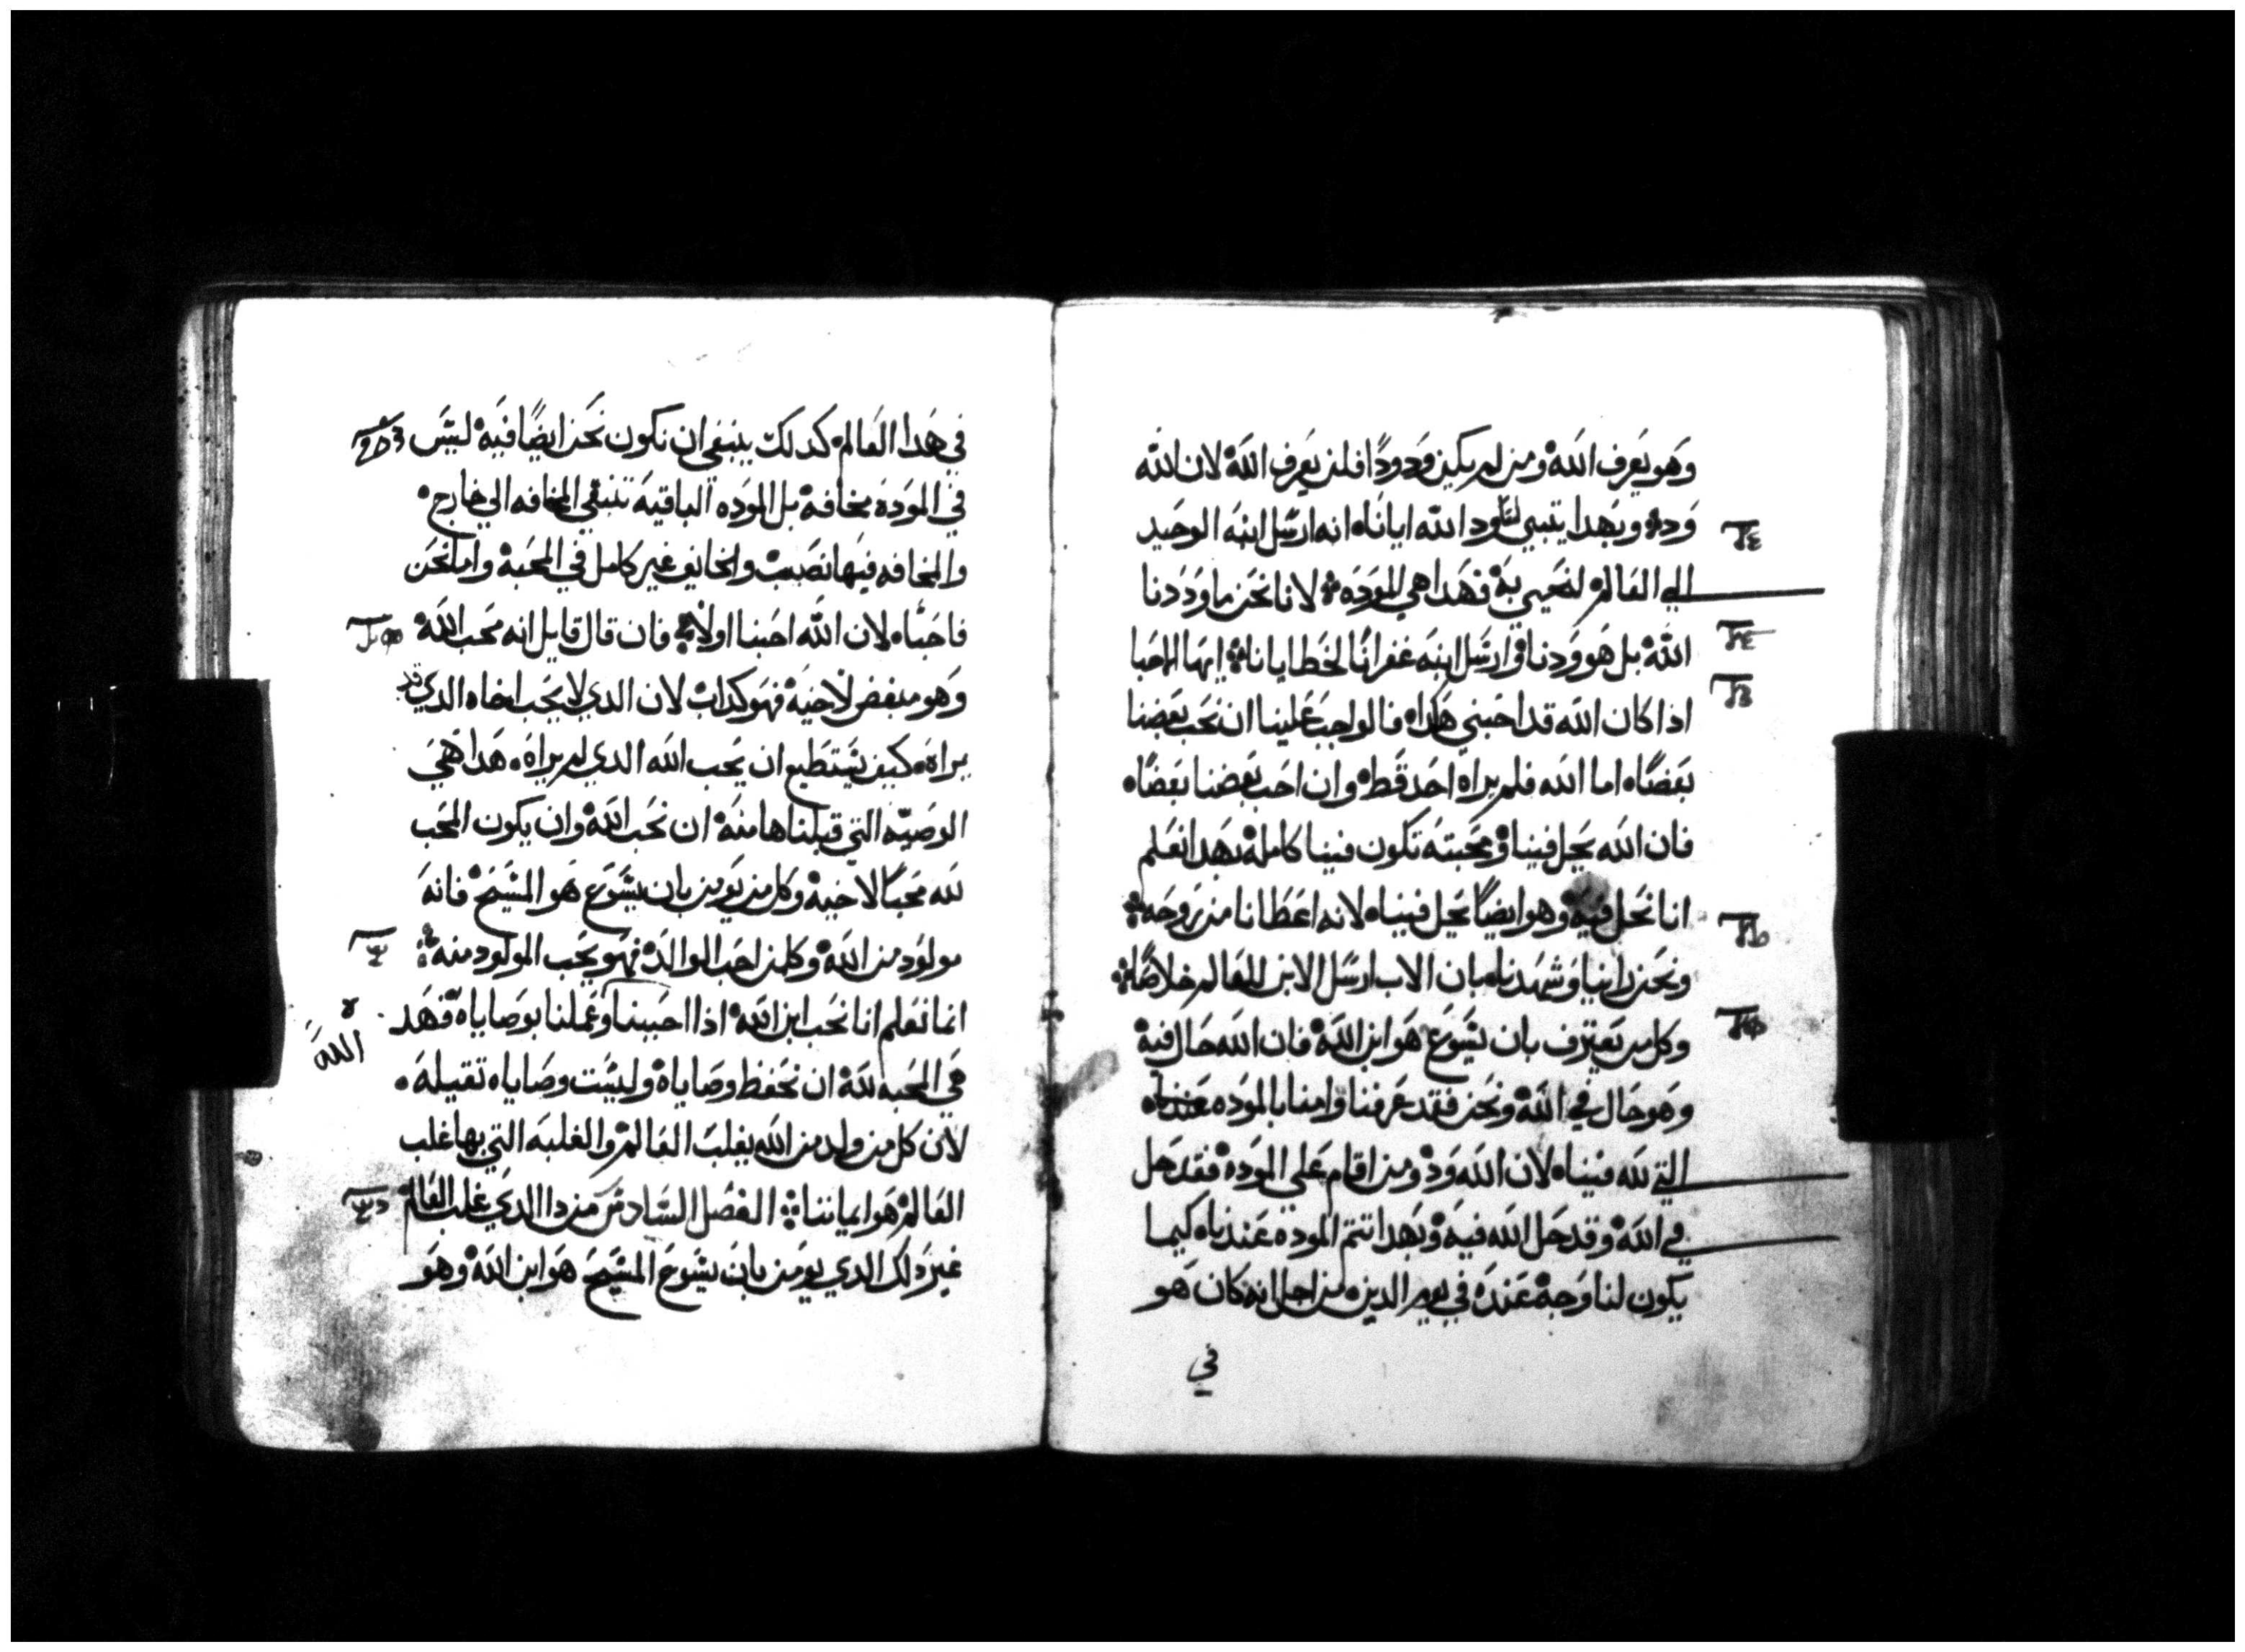 وهو يعرف الله ومن لم يكن ودودًا فلن يعرف الله لان الله
وده وبهدا يتبين لنا ود الله ايانا انه ارسل ابنه الوحيد
الي العالم لنحيي به فهدا هي الموده لانا نحن ما وددنا
الله بل هو ودنا وارسل ابنه غفرانًا لخطايانا ايها الاحبا
ادا كان الله قد احبني هكدا فالواجب علينا ان نحب بعضنا
بعضًا اما الله فلم يراه احد قط وان احب بعضنا بعضًا
فان الله يحل فينا ومحبته تكون فينا كامله بهدا نعلم
انا نحل فيه وهو ايضًا يحل فينا لانه اعطانا من روحه
ونحن راينا وشهدنا بان الاب ارسل الابن للعالم خلاصًا
وكل من يعترف بان يسوع هو ابن الله فان الله حال فيه
وهو حال في الله ونحن فقد عرفنا وامنا بالموده
التي لله فينا لان الله ود ومن اقام علي الموده فقد حل
في الله وقد حل الله فيه وبهدا تتم الموده عندنا كيما
يكون لنا وجه عنده في يوم الدين من اجل انه كان هو
في
في هدا العالم كدلك ينبغي ان نكون نحن ايضًا فيه ليس
في الموده مخافة بل الموده الباقية تنفي المخافه الي خارج
والمخافه فيها نصب والخايف غير كامل في المحبة واما نحن
فاحبنا لان الله احبنا اولا فان قال قايل انه محب الله
وهو مبغض لاخيه فهو كداب لان الدي لا يحب اخاه الدي قد
يراه كيف يستطيع ان يحب الله الدي لم يراه هدا هي
الوصيه التي قبلناها منه ان نحب الله وان يكون المحب
لله محبًا لاخيه وكل من يومن بان يسوع هو المسيح فانه
مولود من الله وكل من احب الوالد فهو يحب المولود منه
انما نعلم انا نحب ابن الله ادا احببنا وعملنا بوصاياه فهد
الله
هي المحبه لله ان نحفظ وصاياه وليست وصاياه تقيله
لان كل من ولد من الله يغلب العالم والغلبه التي بها غلب
العالم هو ايماننا الفصل السادس من دا الدي غلب العالم
غير دلك الدي يومن بان يسوع المسيح هو ابن الله وهو